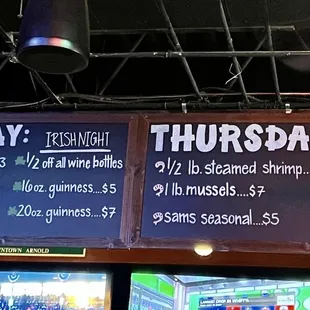 AY: IRISH NIGHT
3 1/2 off all wine bottles
16oz. guinness....$5
20oz. guinness....$7
THURSDA
1/2 lb. steamed shrimp..
1 lb. mussels....$7
sams seasonal....$5
NTOWN ARNOLD